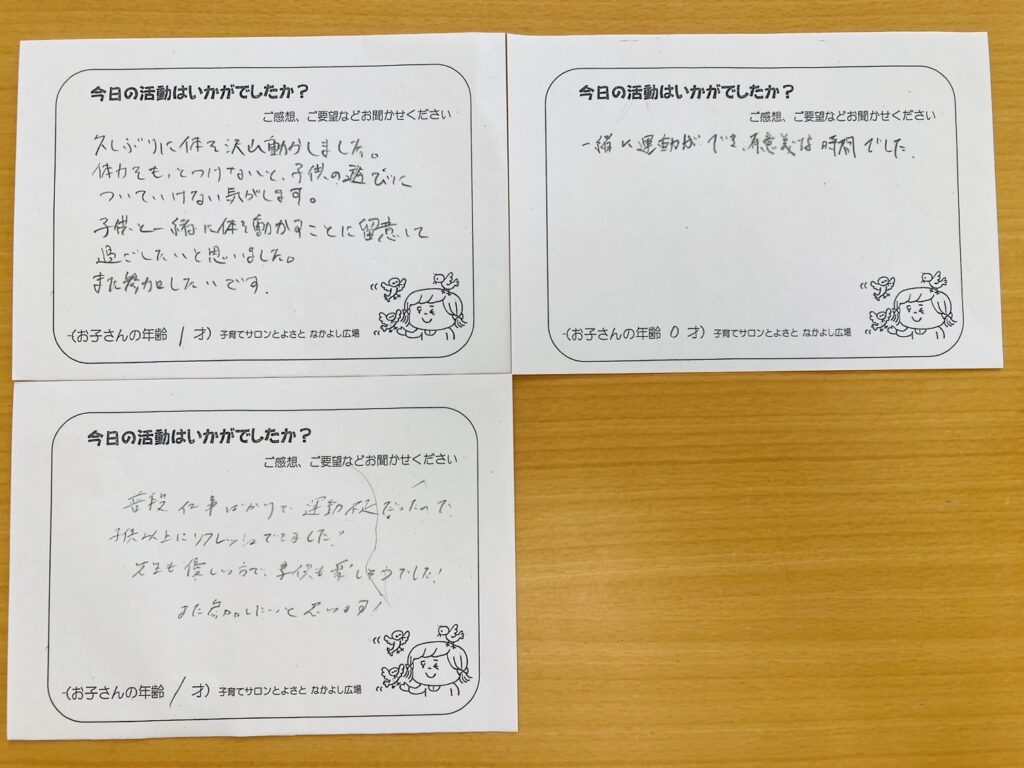 今日の活動はいかがでしたか？
ご感想、ご要望などお聞かせください
久しぶりに体を沢山動かしました。
体力をもっとつけないと、子供の遊びに
ついていけない気がします。
子供と一緒に体を動かすことに留意して
過ごしたいと思いました。
また参加したいです。
(お子さんの年齢 1 才) 子育てサロンとよさと なかよし広場
今日の活動はいかがでしたか？
ご感想、ご要望などお聞かせください
一緒に運動ができ、有意義な時間でした
(お子さんの年齢 0 才) 子育てサロンとよさと なかよし広場
今日の活動はいかがでしたか？
ご感想、ご要望などお聞かせください
普段仕事ばかりで運動不足だったので
子供以上にリフレッシュできました！
先生も優しい方で、子供も楽しそうでした！
また参加したいと思います！
(お子さんの年齢 1 才) 子育てサロンとよさと なかよし広場